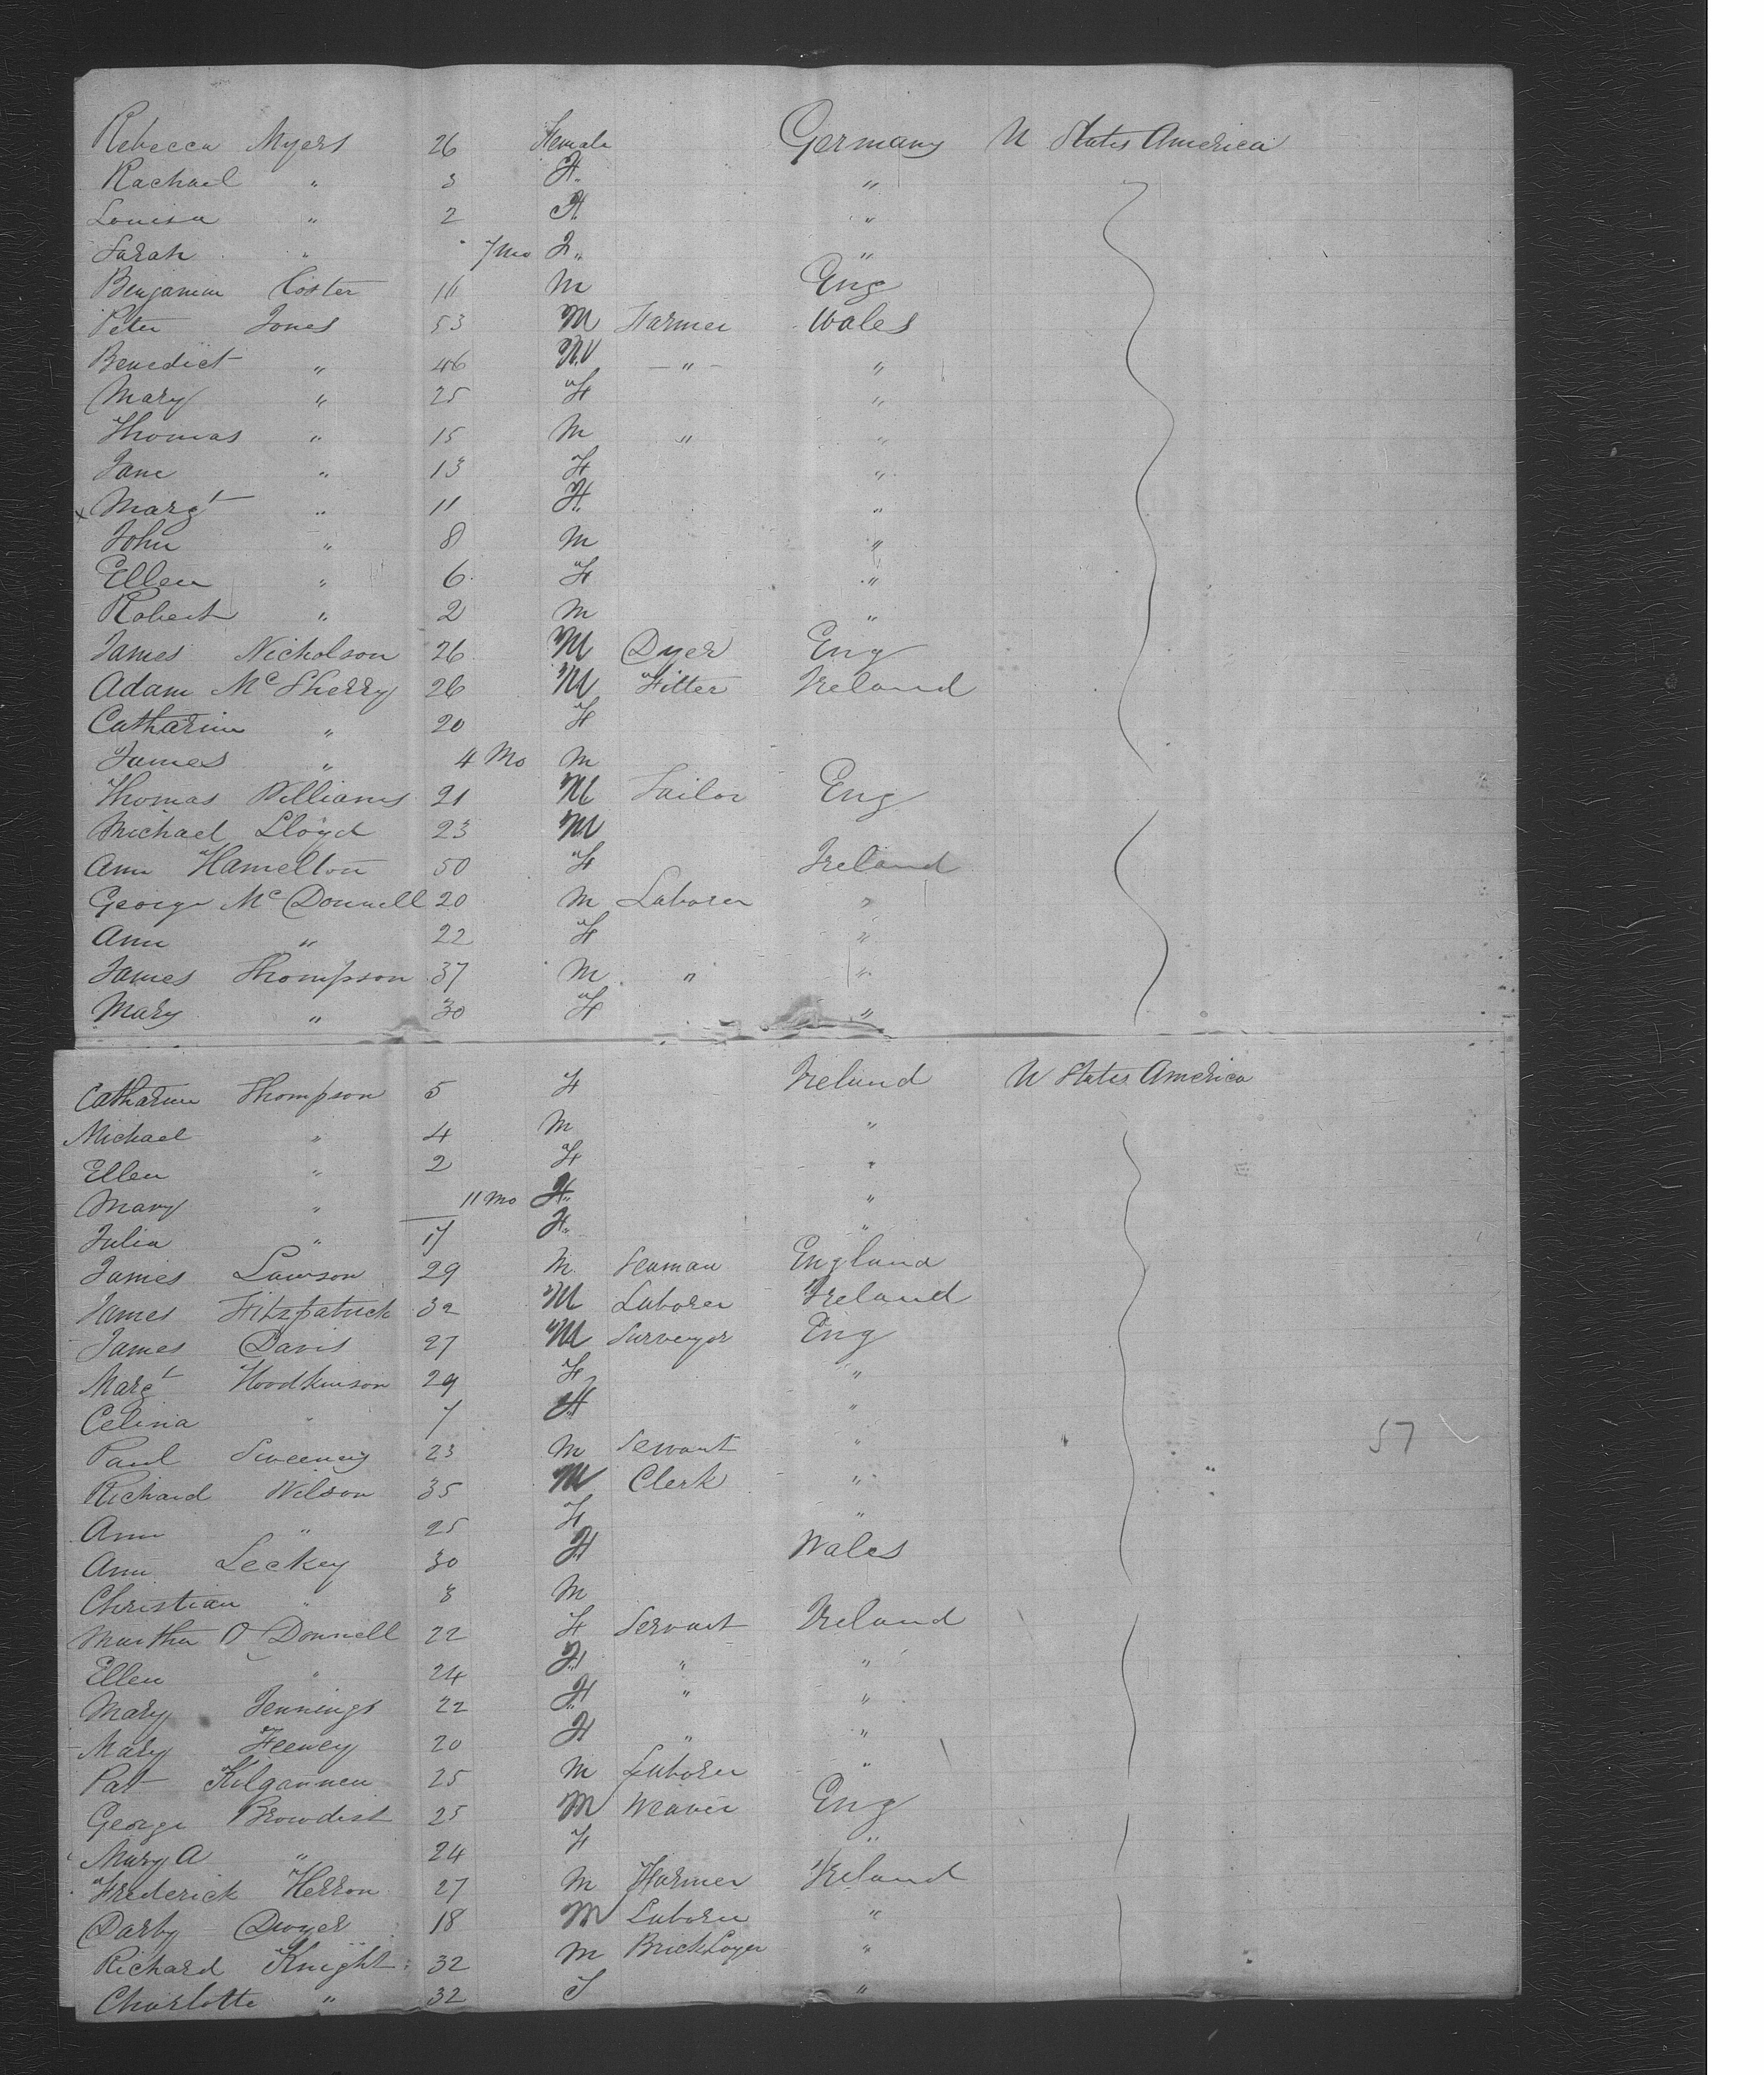 Rebecca Myers 26 Female Germany U States America
Rachael " 3 F. "
Louisa " 2 F. "
Sarah " 7 Mo F. "
Benjamin Coster 11 M Eng
Peter Jones 53 M Farmer Wales
Benedict " 46 M " "
Mary " 25 F "
Thomas " 15 M " "
Jane " 13 F "
x Margt " 11 F "
John " 8 M "
Ellen " 6 F "
Robert " 2 M "
James Nicholson 26 M Dyer Eng
Adam McSherry 26 M Fitter Ireland
Catharine " 20 F
James " 4 Mo M
Thomas Williams 21 M Tailor Eng
Michael Lloyd 23 M
Ann Hamelton 50 F Ireland
George McDonnell 20 M Laborer "
Ann " 22 F "
James Thompson 37 M " "
Mary " 30 F "
Catharine Thompson 5 F Ireland U States America
Michael " 4 M "
Ellen " 2 F "
Mary " 11 Mo F "
Julia " 17 F "
James Lawson 29 M Seaman England
James Fitzpatrick 32 M Laborer Ireland
James Davis 27 M Surveyor Eng
Margt Hoodkinson 29 F "
Celina " 7 F "
57
Paul Sweeney 23 M Servant "
Richard Wilson 35 M Clerk "
Ann " 25 F "
Ann Leckey 30 F Wales
Christian " 3 M
Martha O Donnell 22 F Servant Ireland
Ellen " 24 F " "
Mary Jennings 22 F " "
Mary Feeney 20 F " "
Pat Kilgannen 25 M Laborer "
George Browdist 25 M Weaver Eng
Mary A " 24 F "
Frederick Herron 27 M Farmer Ireland
Darby Dwyer 18 M Laborer "
Richard Knight 32 M Brick Layer "
Charlotte " 32 F "